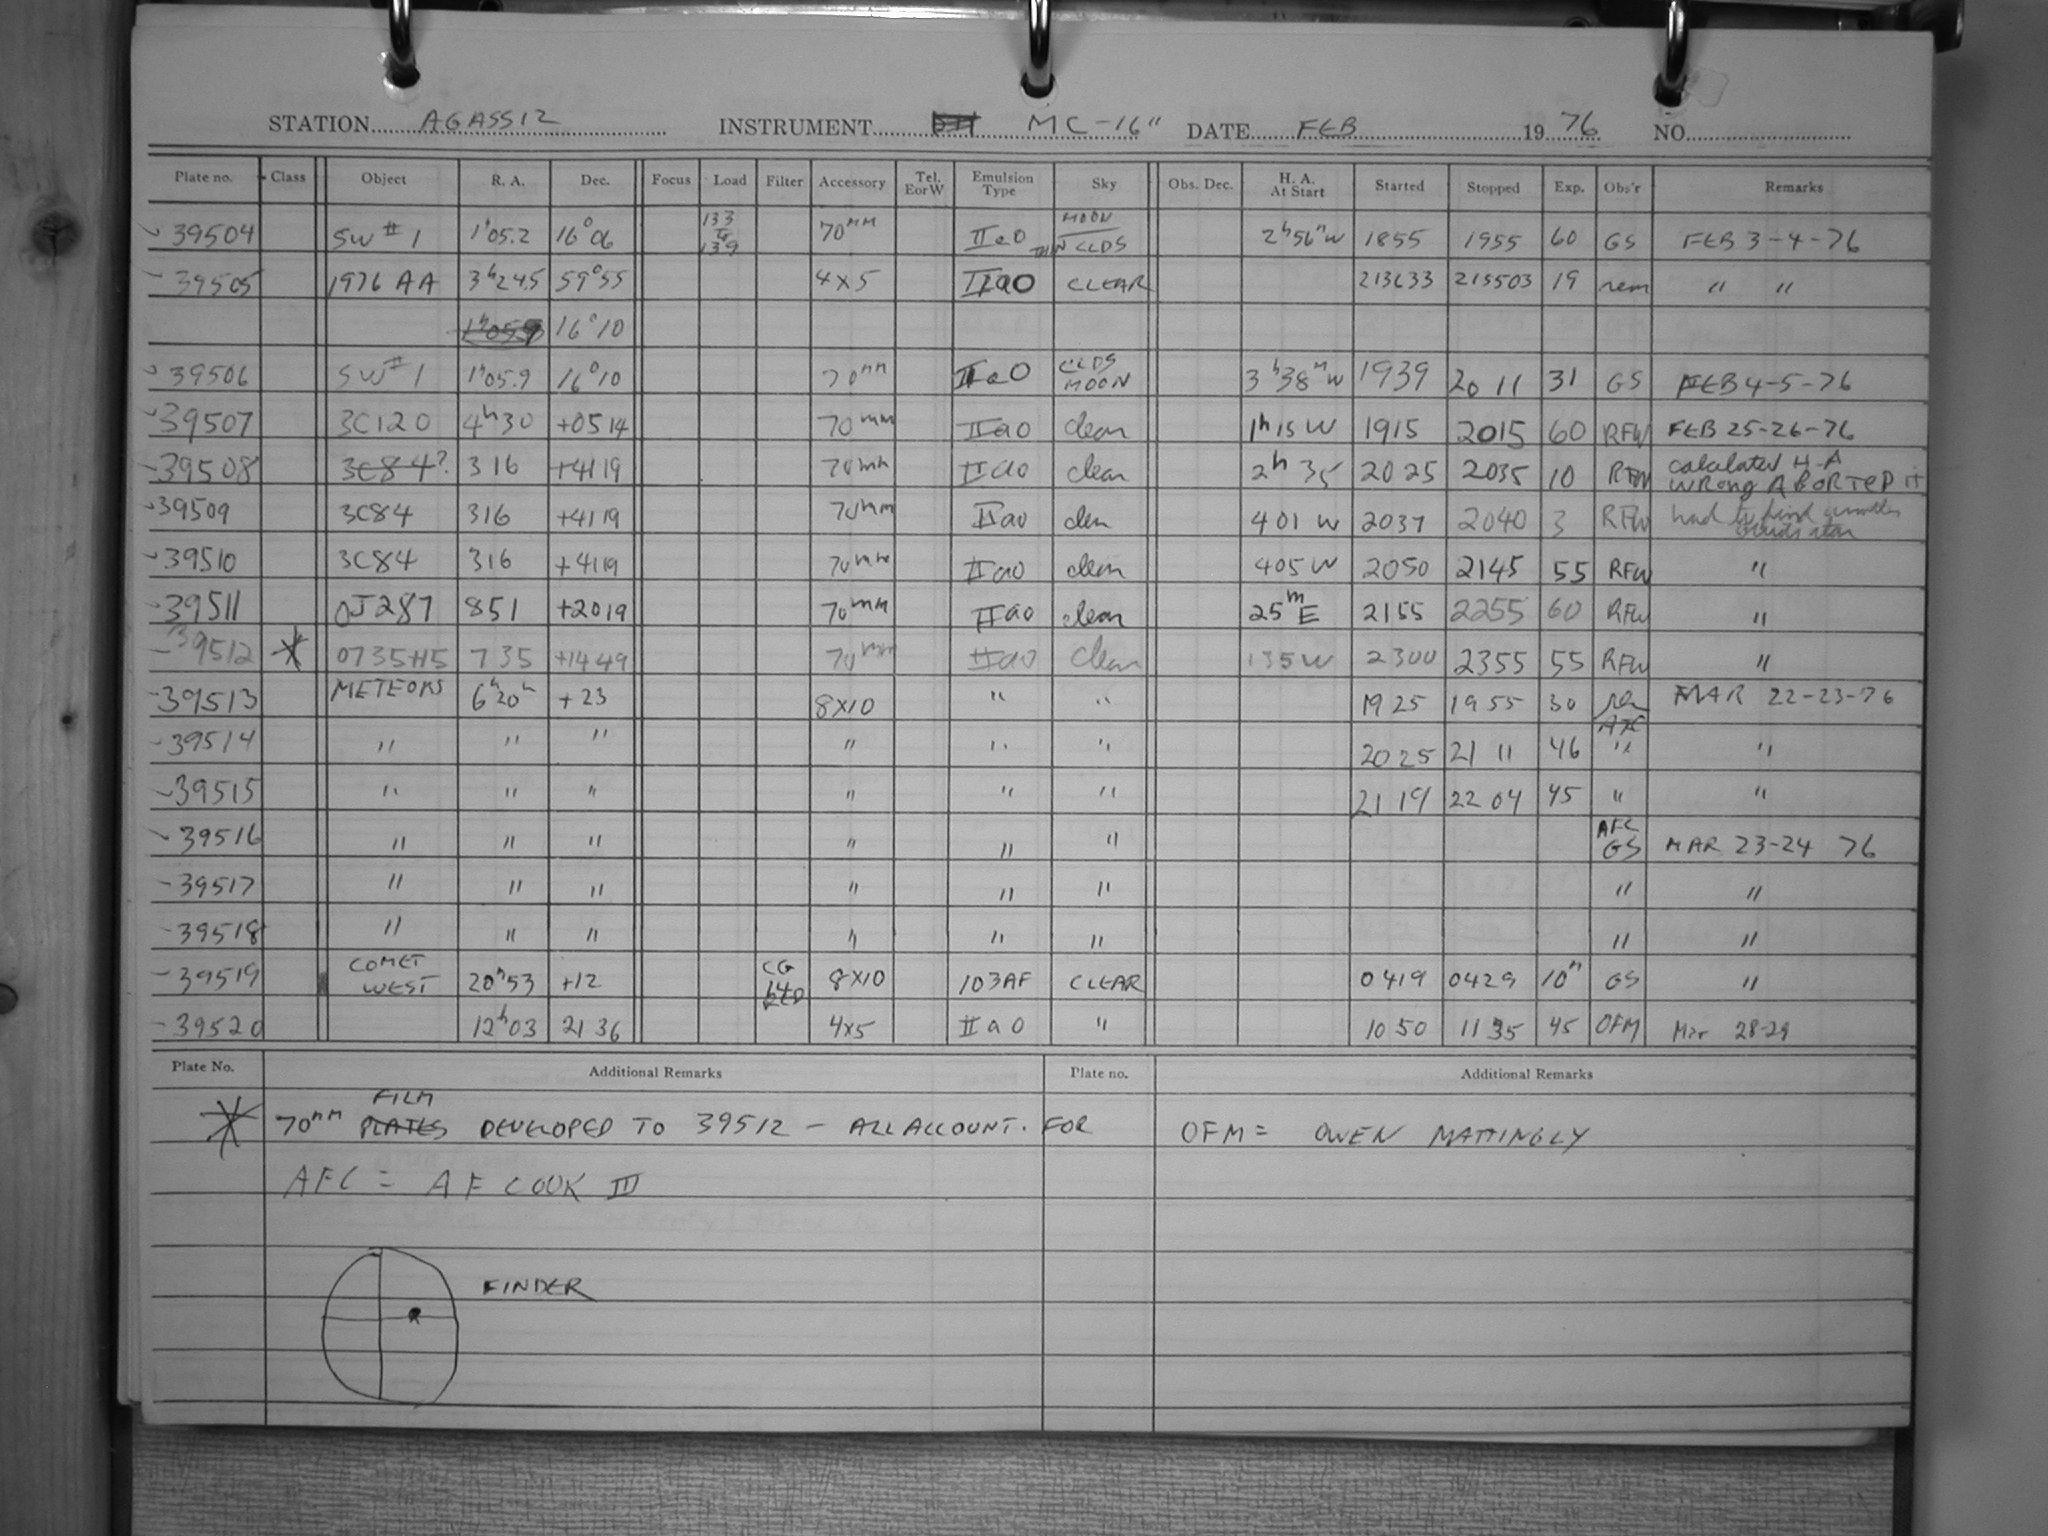 STATION AGASSIZ INSTRUMENT MC-16" DATE FEB 1976 NO.
Plate no. Class Object R. A. Dec. Focus Load Filter Accessory Tel. E or W Emulsion Type Sky Obs. Dec. H. A. At Start Started Stopped Exp. Obs'r Remarks
39504 SW #1 1h05.2 16°06 133 to 139 70MM IIaO MOON THIN CLDS 2h56mW 1855 1955 60 GS FEB 3-4-76
39505 1976 AA 3h24.5 59°55 4x5 IIaO CLEAR 213633 215503 19 rem " "
1h05.9 16°10
39506 SW #1 1h05.9 16°10 70mm IIaO CLDS MOON 3h38mW 1939 20 11 31 GS FEB 4-5-76
39507 3C120 4h30 +0514 70mm IIaO clear 1h15W 1915 2015 60 RFW FEB 25-26-76
39508 3C84? 316 +4119 70mm IIaO clear 2h35 2025 2035 10 RFW calculated H-A wrong ABORTED it
39509 3C84 316 +4119 70mm IIaO clear 401 W 2037 2040 3 RFW had to find another guide star
39510 3C84 316 +4119 70mm IIaO clear 405 W 2050 2145 55 RFW "
39511 OJ287 851 +2019 70mm IIaO clear 25mE 2155 2255 60 RFW "
39512 * 0735+15 735 +1449 70mm IIaO clear 135W 2300 2355 55 RFW "
39513 METEORS 6h20m +23 8x10 " " 1925 1955 30 rem AFC MAR 22-23-76
39514 " " " " " " 2025 21 11 46 " "
39515 " " " " " " 2119 2204 45 " "
39516 " " " " " " AFC GS MAR 23-24 76
39517 " " " " " " " "
39518 " " " " " " " "
39519 COMET WEST 20h53 +12 CG RED 8x10 103AF CLEAR 0419 0429 10m GS "
39520 12h03 21 36 4x5 IIaO " 10 50 11 35 45 OFM Mar 28-29
Plate No. Additional Remarks Plate no. Additional Remarks
* 70MM PLATES FILM DEVELOPED TO 39512 - ALL ACCOUNT. FOR
OFM = OWEN MATTINGLY
AFC = AF COOK III
FINDER